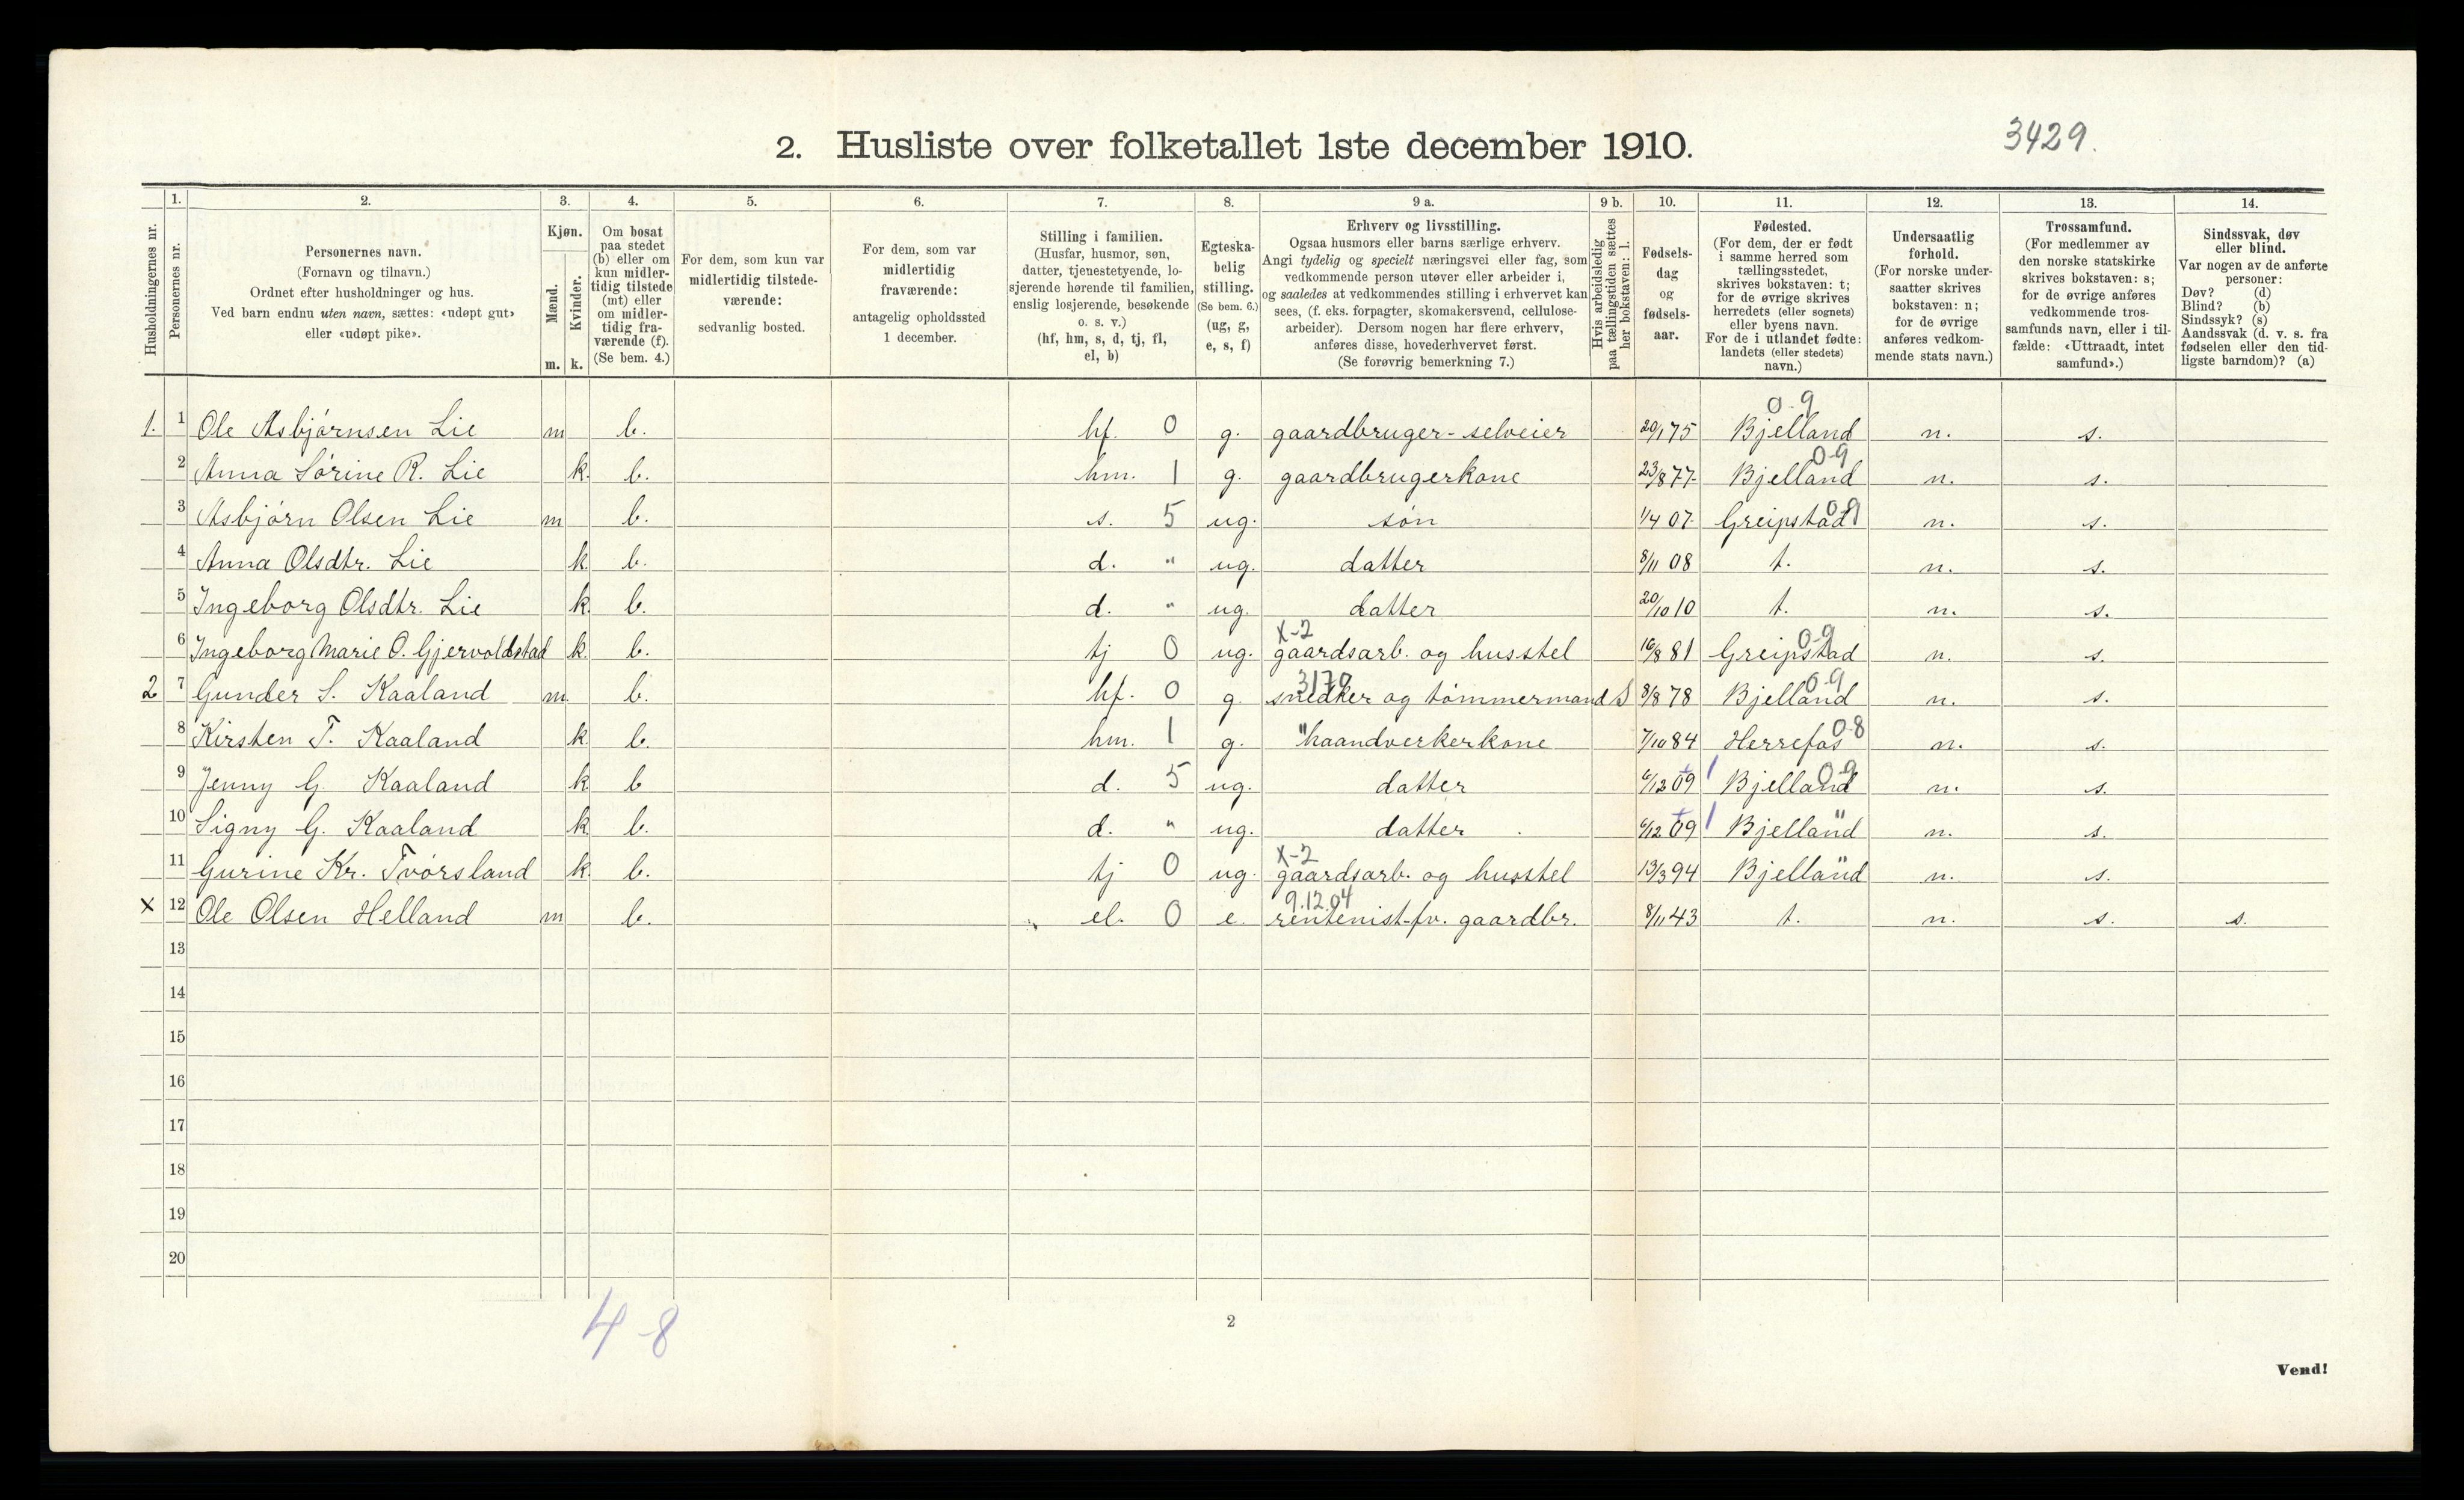 2. Husliste over folketallet 1ste december 1910.
3429.
Husholdningernes nr.
1.
Personernes nr.
2.
Personernes navn.
(Fornavn og tilnavn.)
Ordnet efter husholdninger og hus.
Ved barn endnu uten navn, sættes: «udøpt gut»
eller «udøpt pike».
3.
Kjøn.
Mænd.
Kvinder.
m. k.
4.
Om bosat
paa stedet
(b) eller om
kun midler-
tidig tilstede
(mt) eller
om midler-
tidig fra-
værende (f).
(Se bem. 4.)
5.
For dem, som kun var
midlertidig tilstede-
værende:
sedvanlig bosted.
6.
For dem, som var
midlertidig
fraværende:
antagelig opholdssted
1 december.
7.
Stilling i familien.
(Husfar, husmor, søn,
datter, tjenestetyende, lo-
sjerende hørende til familien,
enslig losjerende, besøkende
o. s. v.)
(hf, hm, s, d, tj, fl,
el, b)
8.
Egteska-
belig
stilling.
(Se bem. 6.)
(ug, g,
e, s, f)
9 a.
Erhverv og livsstilling.
Ogsaa husmors eller barns særlige erhverv.
Angi tydelig og specielt næringsvei eller fag, som
vedkommende person utøver eller arbeider i,
og saaledes at vedkommendes stilling i erhvervet kan
sees, (f. eks. forpagter, skomakersvend, cellulose-
arbeider). Dersom nogen har flere erhverv,
anføres disse, hovederhvervet først.
(Se forøvrig bemerkning 7.)
9 b.
Hvis arbeidsledig
paa tællingstiden sættes
her bokstaven: l.
10.
Fødsels-
dag
og
fødsels-
aar.
11.
Fødested.
(For dem, der er født
i samme herred som
tællingsstedet,
skrives bokstaven: t;
for de øvrige skrives
herredets (eller sognets)
eller byens navn.
For de i utlandet fødte:
landets (eller stedets)
navn.)
12.
Undersaatlig
forhold.
(For norske under-
saatter skrives
bokstaven: n;
for de øvrige
anføres vedkom-
mende stats navn.)
13.
Trossamfund.
(For medlemmer av
den norske statskirke
skrives bokstaven: s;
for de øvrige anføres
vedkommende tros-
samfunds navn, eller i til-
fælde: «Uttraadt, intet
samfund».)
14.
Sindssvak, døv
eller blind.
Var nogen av de anførte
personer:
Døv? (d)
Blind? (b)
Sindssyk? (s)
Aandssvak (d. v. s. fra
fødselen eller den tid-
ligste barndom)? (a)
0-9
1. 1 Ole Asbjørnsen Lie m b. hf. 0 g. gaardbruger-selveier 20/1 75 Bjelland n. s.
0-9
2 Anna Sørine R. Lie k. b. hm. 1 g. gaardbrugerkone 23/8 77 Bjelland n. s.
0-9
3 Asbjørn Olsen Lie m b. s. 5 ug. søn 1/4 07 Greipstad n. s.
4 Anna Olsdtr. Lie k. b. d. " ug. datter 8/11 08 t. n. s.
5 Ingeborg Olsdtr. Lie k. b. d. " ug. datter 20/10 10 t. n. s.
x-2 0-9
6 Ingeborg Marie O. Gjervoldstad k. b. tj 0 ug. gaardsarb. og husstel 16/8 81 Greipstad n. s.
3170 0-9
2 7 Gunder S. Kaaland m. b. hf. 0 g. snedker og tømmermand S 8/8 78 Bjelland n. s.
0-8
8 Kirsten T. Kaaland k. b. hm. 1 g. "haandverkerkone 7/10 84 Herrefos n. s.
0-9
9 Jenny G. Kaaland k b d. 5 ug. datter 6/12 09 1 Bjelland n. s.
10 Signy G. Kaaland k b. d. " ug. datter. 6/12 09 1 Bjelland " n. s.
x-2
11 Gurine Kr. Tvørsland k. b. tj 0 ug. gaardsarb. og husstel 13/3 94 Bjelland " n. s.
9.12.04
x 12 Ole Olsen Helland m b. el. 0 e. rentenist-fv. gaardbr. 8/11 43 t. n. s. s.
13
14
15
16
17
18
19
20
4-8
2
Vend!